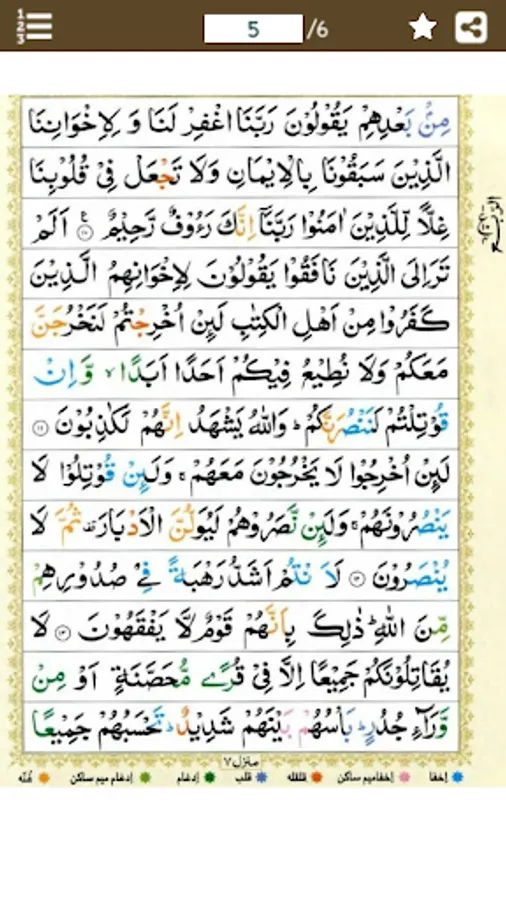 5 /6
مِنْۢ بَعْدِهِمْ يَقُوْلُوْنَ رَبَّنَا اغْفِرْ لَنَا وَ لِاِخْوَانِنَا
الَّذِيْنَ سَبَقُوْنَا بِالْاِيْمَانِ وَلَا تَجْعَلْ فِيْ قُلُوْبِنَا
غِلًّا لِّلَّذِيْنَ اٰمَنُوْا رَبَّنَآ اِنَّكَ رَءُوْفٌ رَّحِيْمٌ ۝١٠ اَلَمْ
تَرَ اِلَى الَّذِيْنَ نَافَقُوْا يَقُوْلُوْنَ لِاِخْوَانِهِمُ الَّذِيْنَ
كَفَرُوْا مِنْ اَهْلِ الْكِتٰبِ لَىِٕنْ اُخْرِجْتُمْ لَنَخْرُجَنَّ
مَعَكُمْ وَلَا نُطِيْعُ فِيْكُمْ اَحَدًا اَبَدًا ۙ وَّاِنْ
قُوْتِلْتُمْ لَنَنْصُرَنَّكُمْ ؕ وَاللّٰهُ يَشْهَدُ اِنَّهُمْ لَكٰذِبُوْنَ ۝١١
لَىِٕنْ اُخْرِجُوْا لَا يَخْرُجُوْنَ مَعَهُمْ ۚ وَلَىِٕنْ قُوْتِلُوْا لَا
يَنْصُرُوْنَهُمْ ۚ وَلَىِٕنْ نَّصَرُوْهُمْ لَيُوَلُّنَّ الْاَدْبَارَ ۫ ثُمَّ لَا
يُنْصَرُوْنَ ۝١٢ لَا۠اَنْتُمْ اَشَدُّ رَهْبَةً فِيْ صُدُوْرِهِمْ
مِّنَ اللّٰهِ ؕ ذٰلِكَ بِاَنَّهُمْ قَوْمٌ لَّا يَفْقَهُوْنَ ۝١٣ لَا
يُقَاتِلُوْنَكُمْ جَمِيْعًا اِلَّا فِيْ قُرًى مُّحَصَّنَةٍ اَوْ مِنْ
وَّرَآءِ جُدُرٍ ؕ بَاْسُهُمْ بَيْنَهُمْ شَدِيْدٌ ؕ تَحْسَبُهُمْ جَمِيْعًا
منزل ٧
إخفا إخفامیم ساکن قلقله قلب إدغام إدغام میم ساکن غُنّه